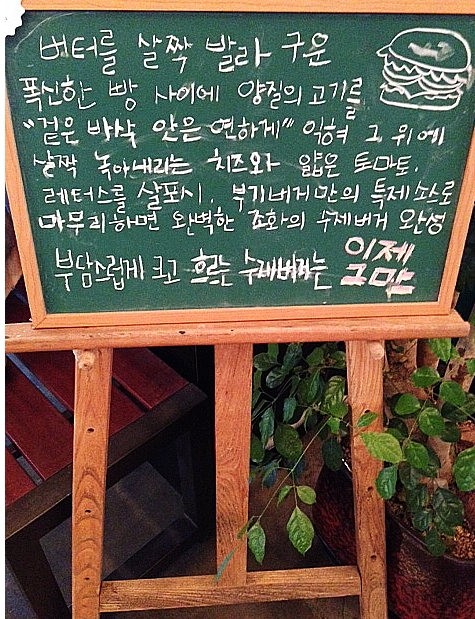 버터를 살짝 발라 구운
폭신한 빵 사이에 양질의 고기를
"겉은 바삭 안은 연하게" 익혀 그 위에
살짝 녹아내리는 치즈와 얇은 토마토,
레터스를 살포시, 부기버거만의 특제소스로
마무리하면 완벽한 조화의 수제버거 완성
부담스럽게 크고 흐르는 수제버거는 이제
그만